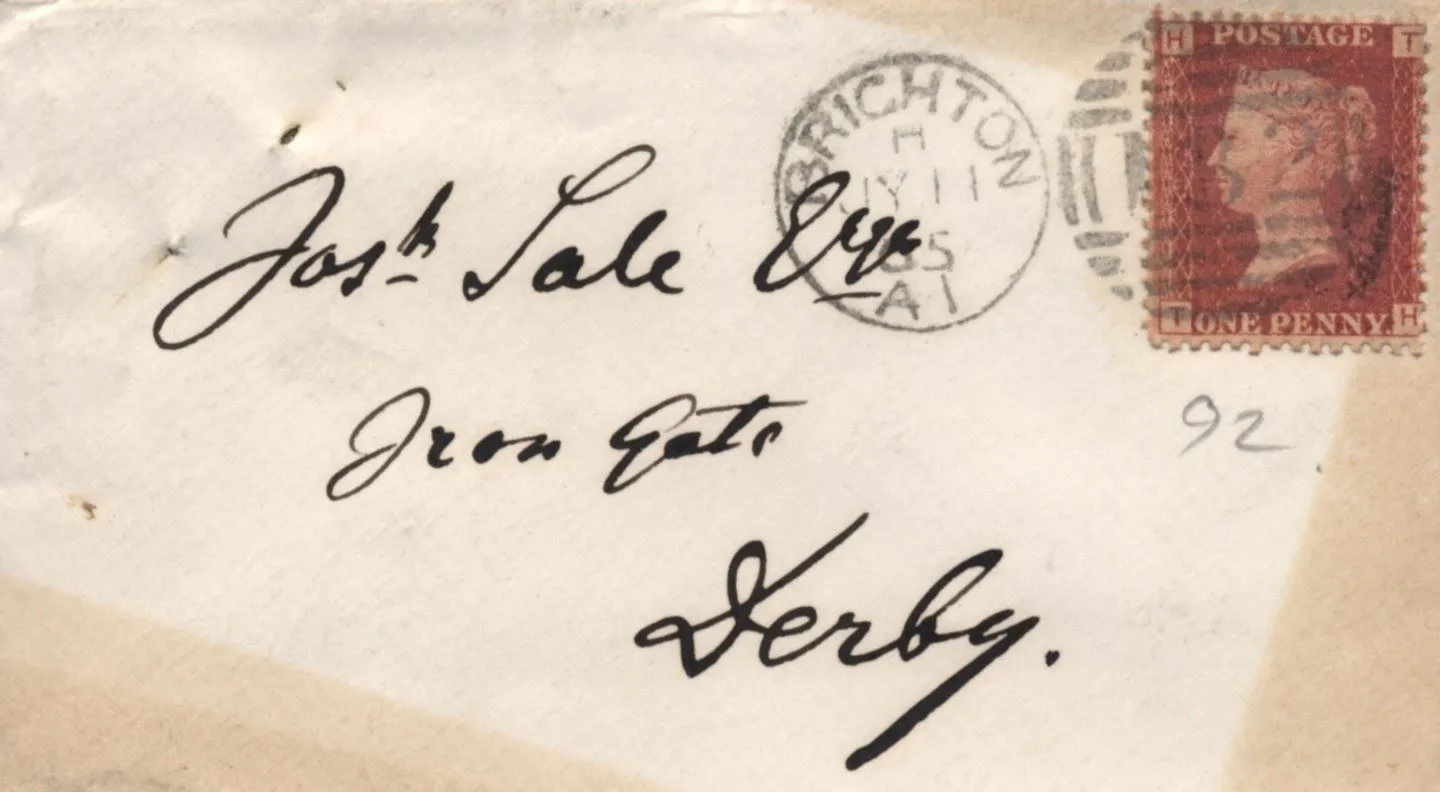 H POSTAGE T
BRIGHTON
H
JY 11
65
A1
T ONE PENNY. H
Josh Sale Esqe
Iron Gate
92
Derby.